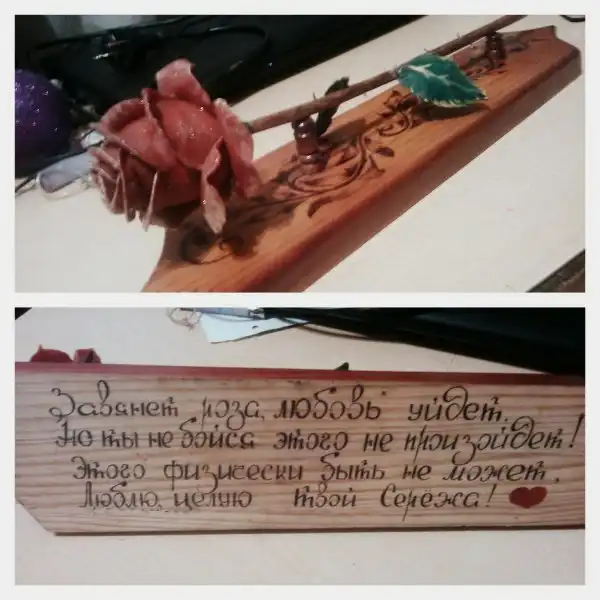 Завянет роза, любовь уйдет,
Но ты не бойся этого не произойдет!
Этого физически быть не может,
Люблю, целую твой Серёжа!